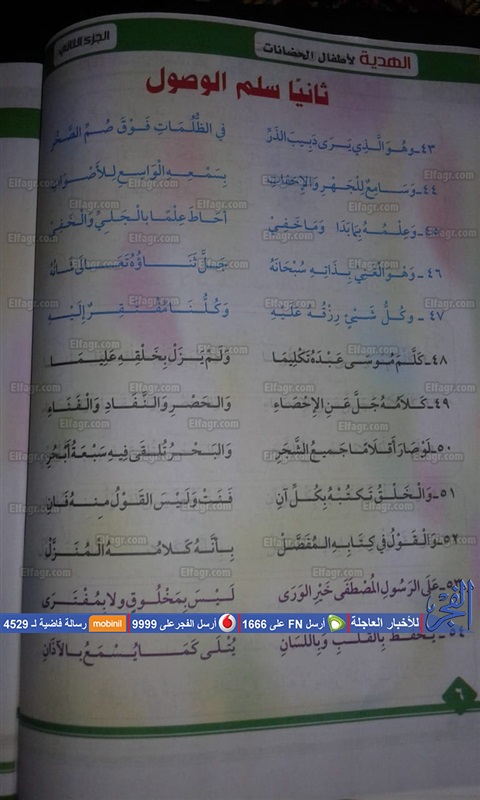 الهدية لأطفال الحضانات
الجزء الثاني
ثانيًا سلم الوصول
٤٣- وَهُوَ الَّذِي يَرَى دَبِيبَ الذَّرِّ فِي الظُّلُمَاتِ فَوْقَ صُمِّ الصَّخْرِ
٤٤- وَسَامِعٌ لِلْجَهْرِ وَالإِخْفَاتِ بِسَمْعِهِ الْوَاسِعِ لِلأَصْوَاتِ
٤٥- وَعِلْمُهُ بِمَا بَدَا وَمَا خَفِيْ أَحَاطَ عِلْمًا بِالْجَلِيِّ وَالْخَفِيْ
٤٦- وَهُوَ الْغَنِيُّ بِذَاتِهِ سُبْحَانَهُ جَلَّ ثَنَاؤُهُ تَعَالَى شَانُهُ
٤٧- وَكُلُّ شَيْءٍ رِزْقُهُ عَلَيْهِ وَكُلُّنَا مُفْتَقِرٌ إِلَيْهِ
٤٨- كَلَّمَ مُوسَى عَبْدَهُ تَكْلِيمًا وَلَمْ يَزَلْ بِخَلْقِهِ عَلِيمًا
٤٩- كَلَامُهُ جَلَّ عَنِ الإِحْصَاءِ وَالْحَصْرِ وَالنَّفَادِ وَالْفَنَاءِ
٥٠- لَوْ صَارَ أَقْلَامًا جَمِيعُ الشَّجَرِ وَالْبَحْرُ تُلْقَى فِيهِ سَبْعَةُ أَبْحُرِ
٥١- وَالْخَلْقُ تَكْتُبْهُ بِكُلِّ آنِ فَنَتْ وَلَيْسَ الْقَوْلُ مِنْهُ فَانِ
٥٢- وَالْقَوْلُ فِي كِتَابِهِ الْمُفَصَّلْ بِأَنَّهُ كَلَامُهُ الْمُنَزَّلْ
٥٣- عَلَى الرَّسُولِ الْمُصْطَفَى خَيْرِ الْوَرَى لَيْسَ بِمَخْلُوقٍ وَلَا بِمُفْتَرَى
٥٤- يُحْفَظُ بِالْقَلْبِ وَبِاللِّسَانِ يُتْلَى كَمَا يُسْمَعُ بِالآذَانِ
الفجر
للأخبار العاجلة أرسل FN على 1666 أرسل الفجر على 9999 mobinil رسالة فاضية لـ 4529
٦
Elfagr.com